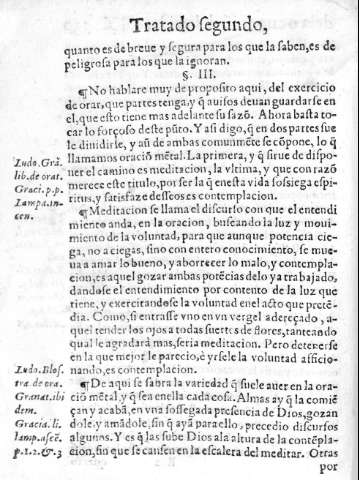 Tratado segundo,
quanto es de breue y segura para los que la saben, es de
peligrosa para los que la ignoran.
§. III.
¶No hablare muy de proposito aqui, del exercicio
de orar, que partes tenga, y q̃ auisos deuan guardarse en
el, que esto tiene mas adelante su sazõ. Ahora basta to-
car lo forçoso deste pũto. Y assi digo, q̃ en dos partes fue
le diuidirse, y aũ de ambas comunmẽte se cõpone, lo q̃
llamamos oraciõ mẽtal. La primera, y q̃ sirue de dispo-
ner el camino es meditacion, la vltima, y que con razõ
merece este titulo, por ser la q̃ en esta vida sossiega espi-
ritus, y satisfaze desseos es contemplacion.
Ludo. Grã.
lib. de orat.
Graci. p. p.
Lampa. in-
cen.
¶Meditacion se llama el discurso con que el entendi
miento anda, en la oracion, buscando la luz y moui-
miento de la voluntad, para que aunque potencia cie-
ga, no a ciegas, sino con entero conocimiento, se mue-
ua a amar lo bueno, y aborrecer lo malo, y contempla-
cion, es aquel gozar ambas potẽcias delo ya trabajado,
dandose el entendimiento por contento de la luz que
tiene, y exercitandose la voluntad en el acto que pretẽ-
dia. Como, si entrasse vno en vn vergel adereçado, a-
quel tender los ojos a todas suertes de flores, tanteando
qual le agradará mas, seria meditacion. Pero detenerse
en la que mejor le parecio, è yrsele la voluntad afficio-
nando, es contemplacion.
¶De aqui se sabra la variedad q̃ suele auer en la ora-
ciõ mẽtal, y q̃ sea en ella cada cosa. Almas ay q̃ la comiẽ
çan y acabã, en vna sossegada presencia de Dios, gozan
dole, y amãdole, sin q̃ aya para ello, precedio discursos
algunos. Y es q̃ las sube Dios ala altura de la contẽpla-
cion, sin que se cansen en la escalera del meditar. Otras
por
Ludo. Blos.
tra. de ora.
Granat. ibi
dem.
Gracia. li.
lamp. ascẽ.
p. 1. 2. & 3